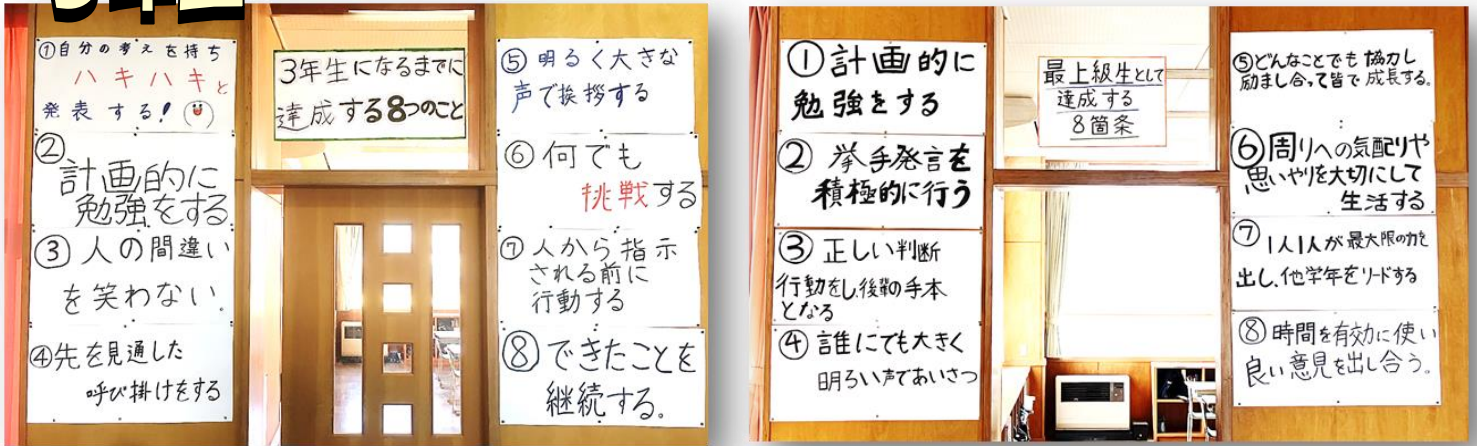 ①自分の考えを持ち
ハキハキと
発表する!
②
計画的に
勉強をする
③人の間違い
を笑わない。
④先を見通した
呼び掛けをする
3年生になるまでに
達成する8つのこと
⑤明るく大きな
声で挨拶する
⑥何でも
挑戦する
⑦人から指示
される前に
行動する
⑧できたことを
継続する。
①計画的に
勉強をする
②挙手発言を
積極的に行う
③正しい判断
行動をし、後輩の手本
となる
④誰にでも大きく
明るい声であいさつ
最上級生として
達成する
8箇条
⑤どんなことでも協力し
励まし合って皆で成長する。
⑥周りへの気配りや
思いやりを大切にして
生活する
⑦1人1人が最大限の力を
出し、他学年をリードする
⑧時間を有効に使い
良い意見を出し合う。